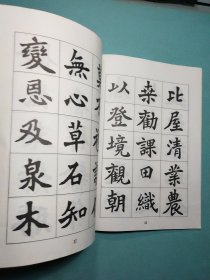 比屋清業農
桒勸課田織
以登境觀朝
無心草石知
變恩及泉木